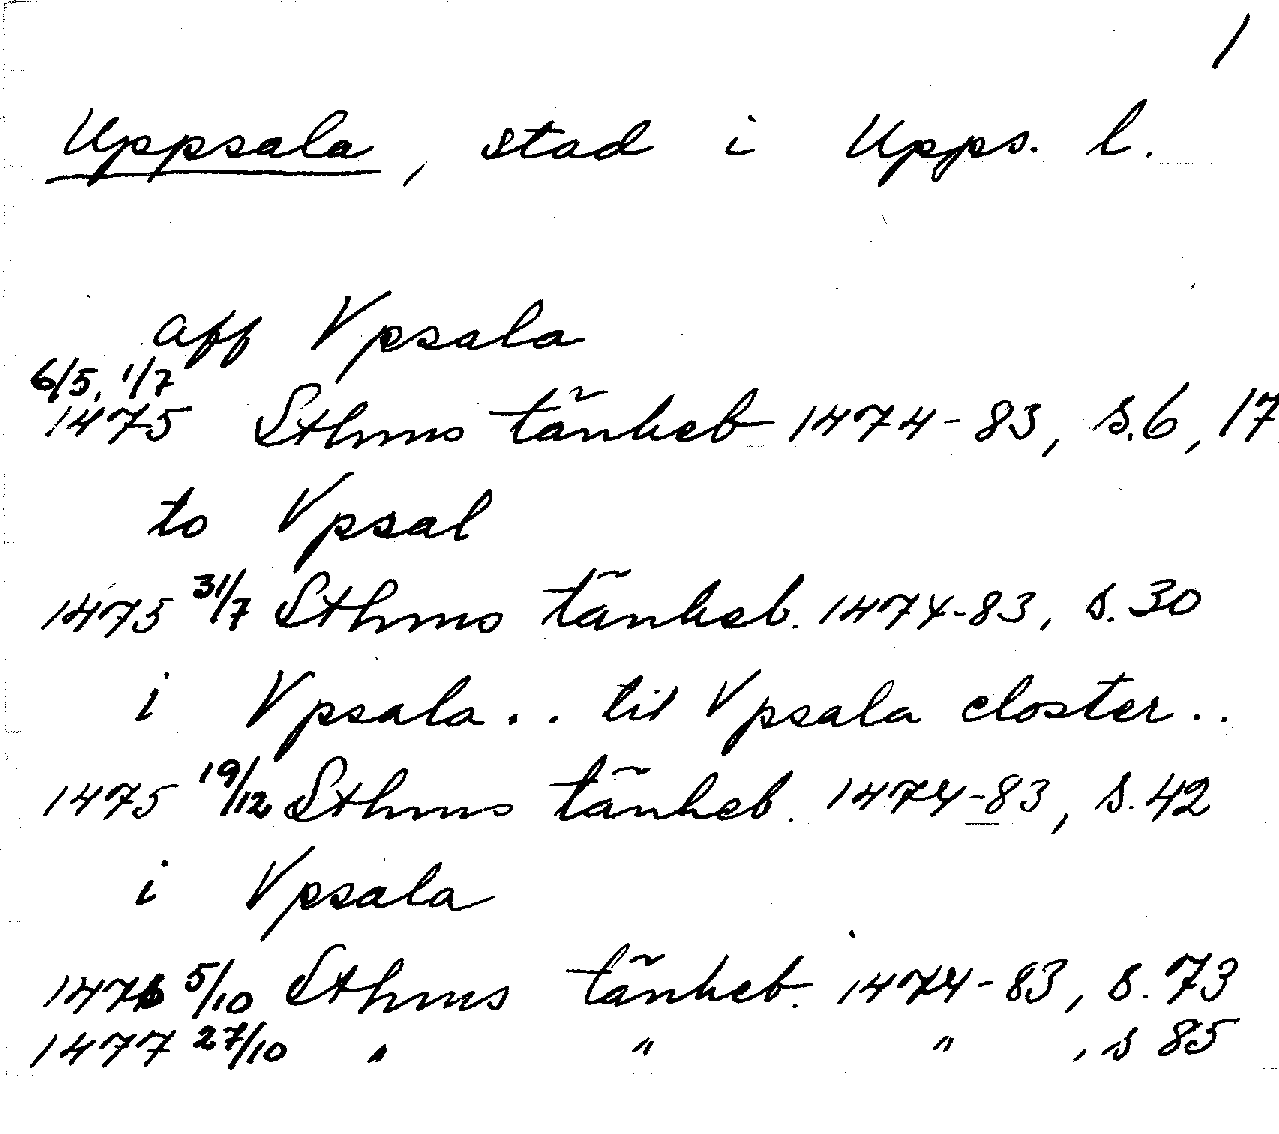 1
Uppsala, stad i Upps. l.
aff Vpsala
6/5, 1/7
1475 Sthms tänkeb 1474-83, s.6, 17
to Vpsal
1475 31/7 Sthms tänkeb. 1474-83, s.30
i Vpsala.. til Vpsala closter..
1475 19/12 Sthms tänkeb. 1474-83, s.42
i Vpsala
1476 5/10 Sthms tänkeb. 1474-83, s.73
1477 27/10 " " " , s 85